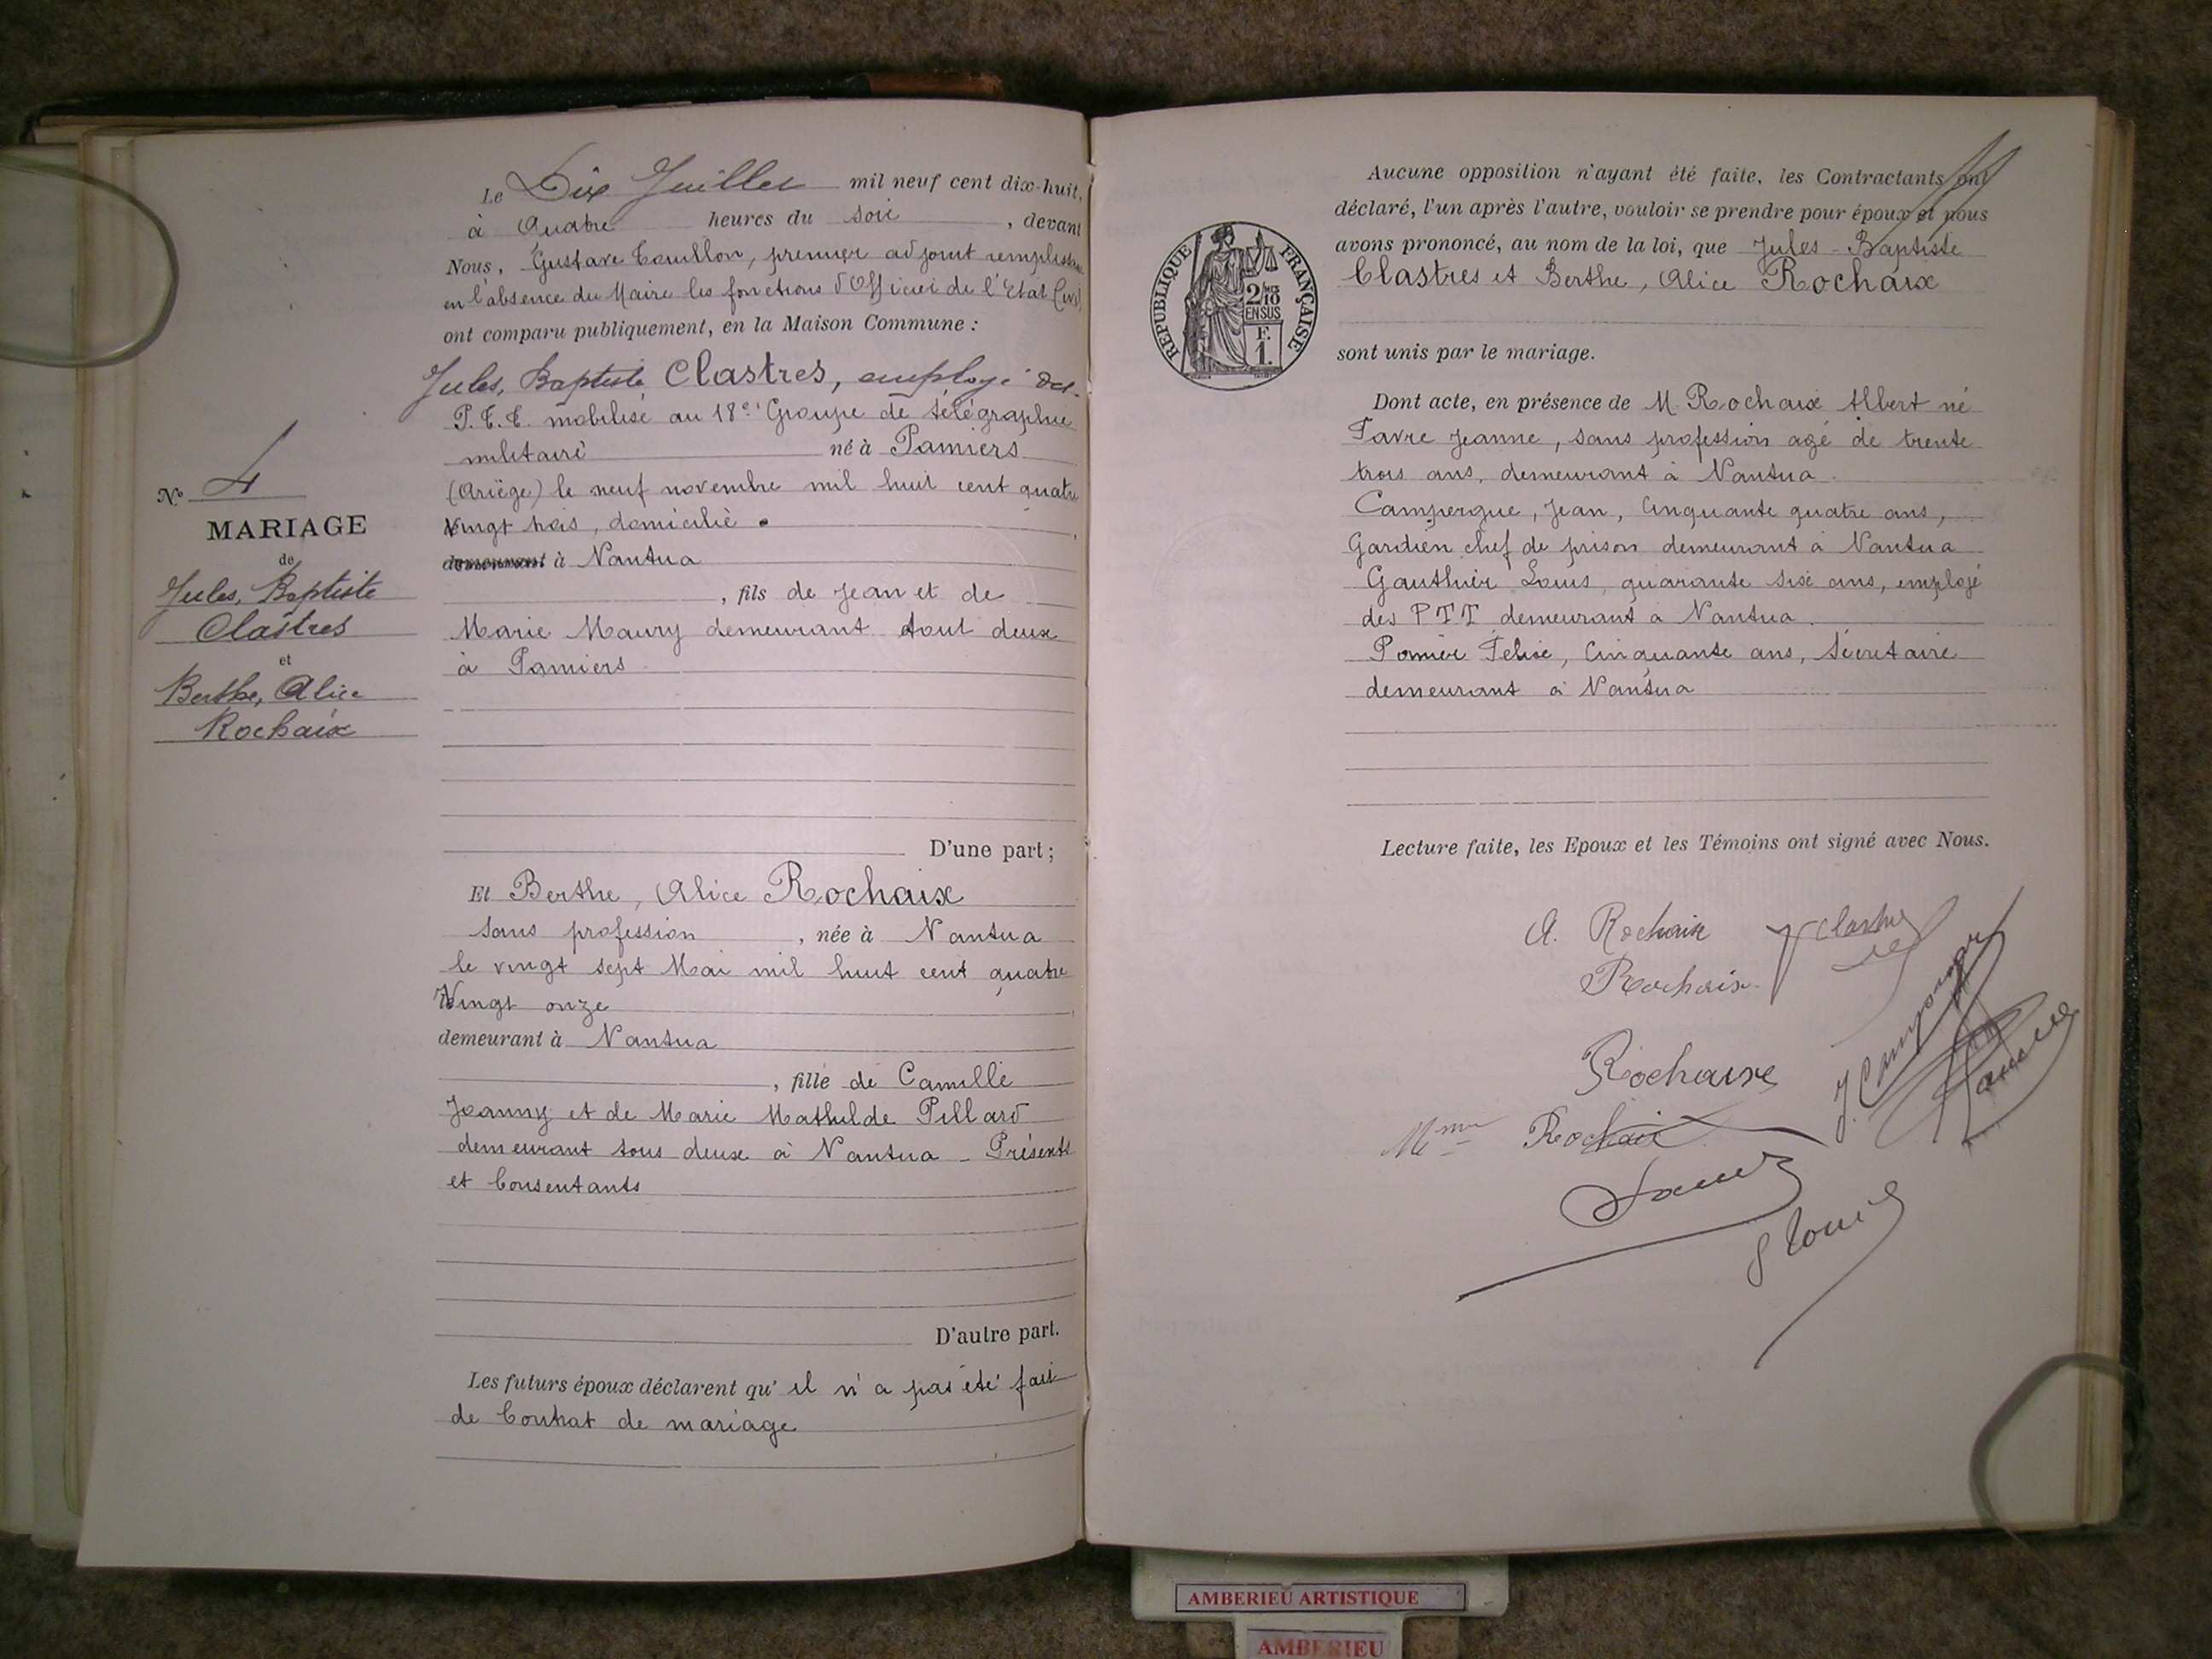 Le Dix Juillet mil neuf cent dix-huit,
à Quatre heures du soir, devant
Nous, Gustave Touillon, premier adjoint remplissant
en l'absence du Maire les fonctions d'Officier de l'Etat Civil
ont comparu publiquement, en la Maison Commune :
Jules, Baptiste Clastres, employé des
P.T.T. mobilisé au 18e Groupe de télégraphie
militaire né à Pamiers
(Ariège) le neuf novembre mil huit cent quatre
vingt trois, domicilié
demeurant à Nantua
, fils de Jean et de
Marie Maury demeurant tout deux
à Pamiers
D'une part;
Et Berthe, Alice Rochaix
sans profession, née à Nantua
le vingt sept Mai mil huit cent quatre
Vingt onze
demeurant à Nantua
, fille de Camille
Joanny et de Marie Mathilde Pillard
demeurant tous deux à Nantua - Présents
et Consentants
D'autre part.
Les futurs époux déclarent qu'il n'a pas été fait
de Contrat de mariage
N° 4
MARIAGE
de
Jules, Baptiste
Clastres
et
Berthe, Alice
Rochaix
Aucune opposition n'ayant été faite, les Contractants ont
déclaré, l'un après l'autre, vouloir se prendre pour époux et nous
avons prononcé, au nom de la loi, que Jules-Baptiste
Clastres et Berthe, Alice Rochaix
sont unis par le mariage.
REPUBLIQUE FRANÇAISE
2/10
EN SUS
F.
1.
Dont acte, en présence de M. Rochaix Albert né
Favre Jeanne, sans profession agé de trente
trois ans, demeurant à Nantua.
Campergue, Jean, Cinquante quatre ans,
Gardien chef de prison demeurant à Nantua
Gauthier Louis, quarante six ans, employé
des PTT demeurant à Nantua.
Pomier Felix, Cinquante ans, Sécretaire
demeurant à Nantua
Lecture faite, les Epoux et les Témoins ont signé avec Nous.
A. Rochaix J Clastres
Rochaix
J. Campergue
Rochaix
Mme Rochaix
AMBERIEU ARTISTIQUE
AMBERIEU